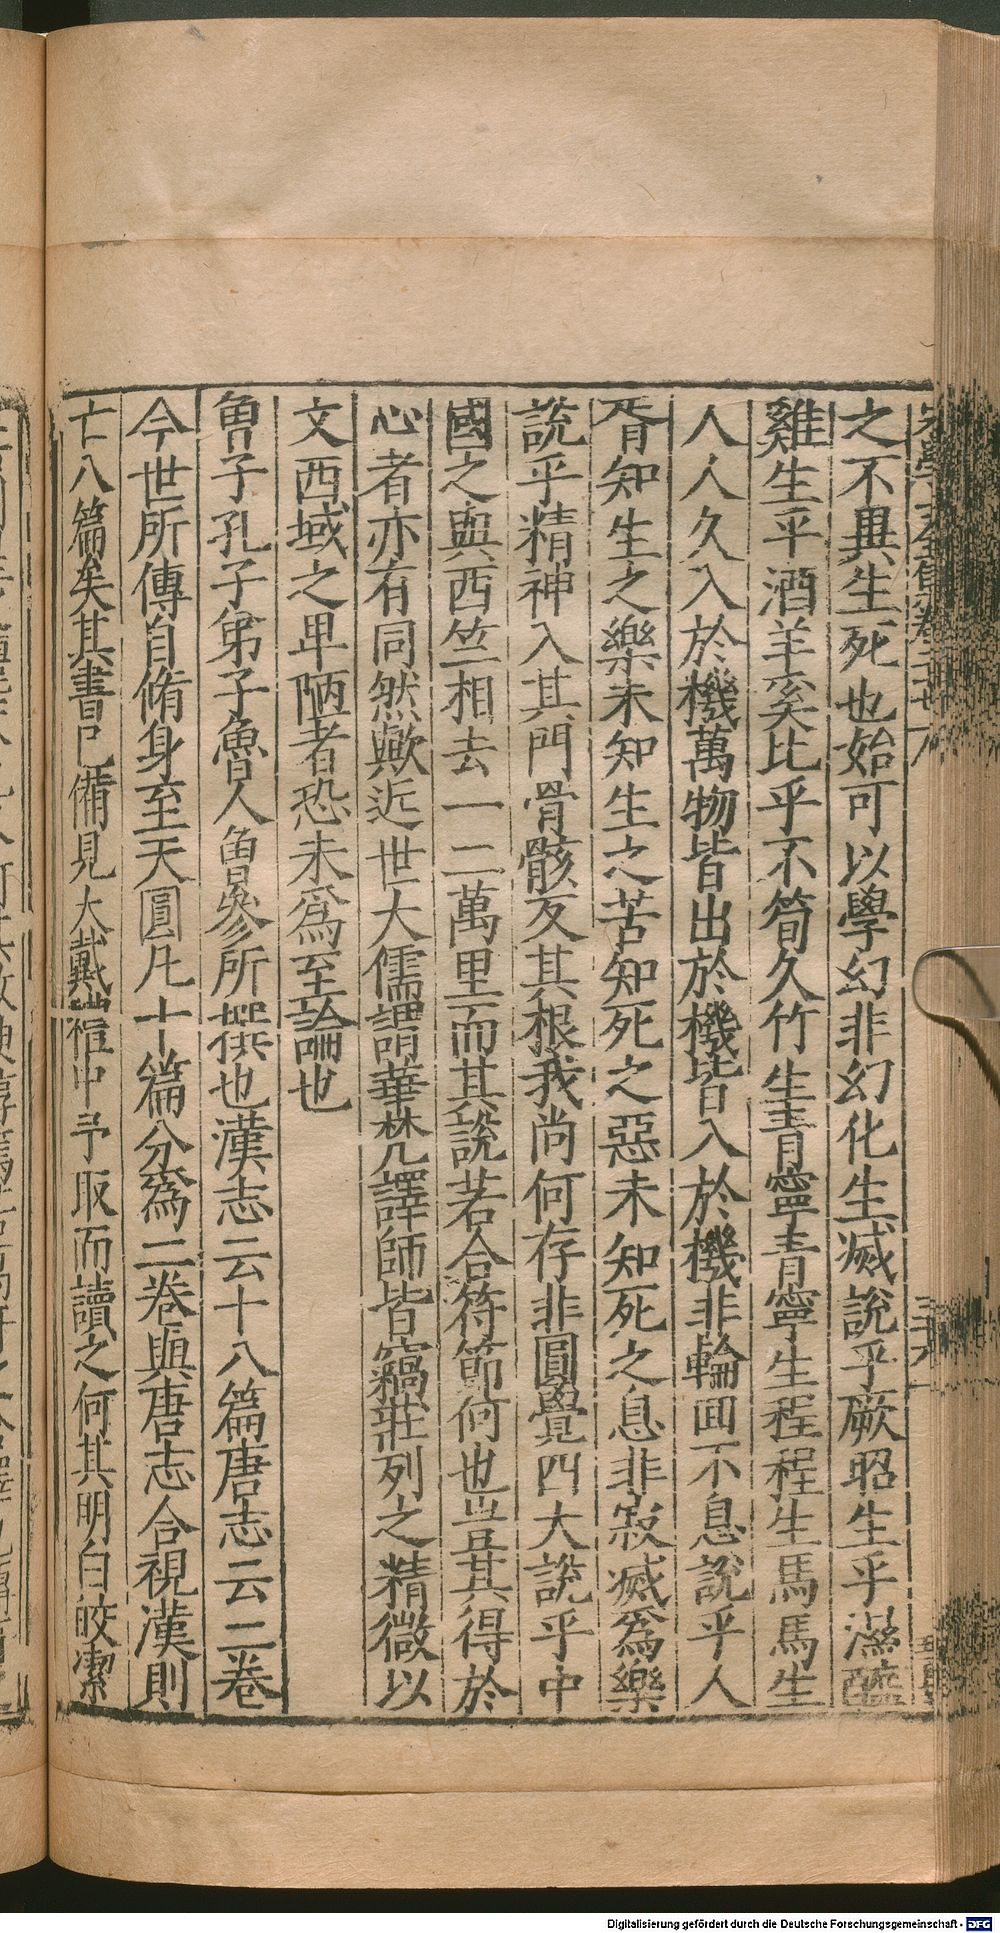 之不異生死也始可以學幻非幻化生滅說乎厥昭生乎濕醯
雞生乎酒羊奚比乎不筍久竹生青寧青寧生程程生馬馬生
人人久入於機萬物皆出於機皆入於機非輪回不息說乎人
胥知生之樂未知生之苦知死之惡未知死之息非寂滅爲樂
說乎精神入其門骨骸反其根我尚何存非圓覺四大說乎中
國之與西竺相去一二萬里而其說若合符節何也豈其得於
心者亦有同然歟近世大儒謂華梵譯師皆竊莊列之精微以
文西域之卑陋者恐未爲至論也
曾子孔子弟子魯人曾參所撰也漢志云十八篇唐志云二卷
今世所傳自脩身至天圓凡十篇分爲二卷與唐志合視漢則
亡八篇矣其書已備見大戴禮中予取而讀之何其明白皎潔
Digitalisierung gefördert durch die Deutsche Forschungsgemeinschaft - DFG